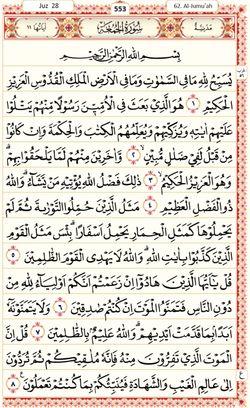 Juz 28
553
62. Al-Jumu'ah
مدنية
سورة الجمعة
آياتها ١١
بسم الله الرحمن الرحيم
يسبح لله ما في السموت وما في الأرض الملك القدوس العزيز
الحكيم ١ هو الذي بعث في الأمين رسولا منهم يتلوا
عليهم ايته ويزكيهم ويعلمهم الكتب والحكمة وان كانوا
من قبل لفي ضلل مبين ٢ وآخرين منهم لما يلحقوا بهم
وهو العزيز الحكيم ٣ ذلك فضل الله يؤتيه من يشاء والله
ذو الفضل العظيم ٤ مثل الذين حملوا التورىة ثم لم
يحملوها كمثل الحمار يحمل أسفارا بئس مثل القوم
الذين كذبوا بايت الله والله لا يهدي القوم الظلمين ٥
قل يأيها الذين هادوا ان زعمتم أنكم أولياء لله من
دون الناس فتمنوا الموت ان كنتم صدقين ٦ ولا يتمنونه
أبدا بما قدمت أيديهم والله عليم بالظلمين ٧ قل إن
الموت الذي تفرون منه فإنه ملقيكم ثم تردون
إلى علم الغيب والشهادة فينبئكم بما كنتم تعملون ٨